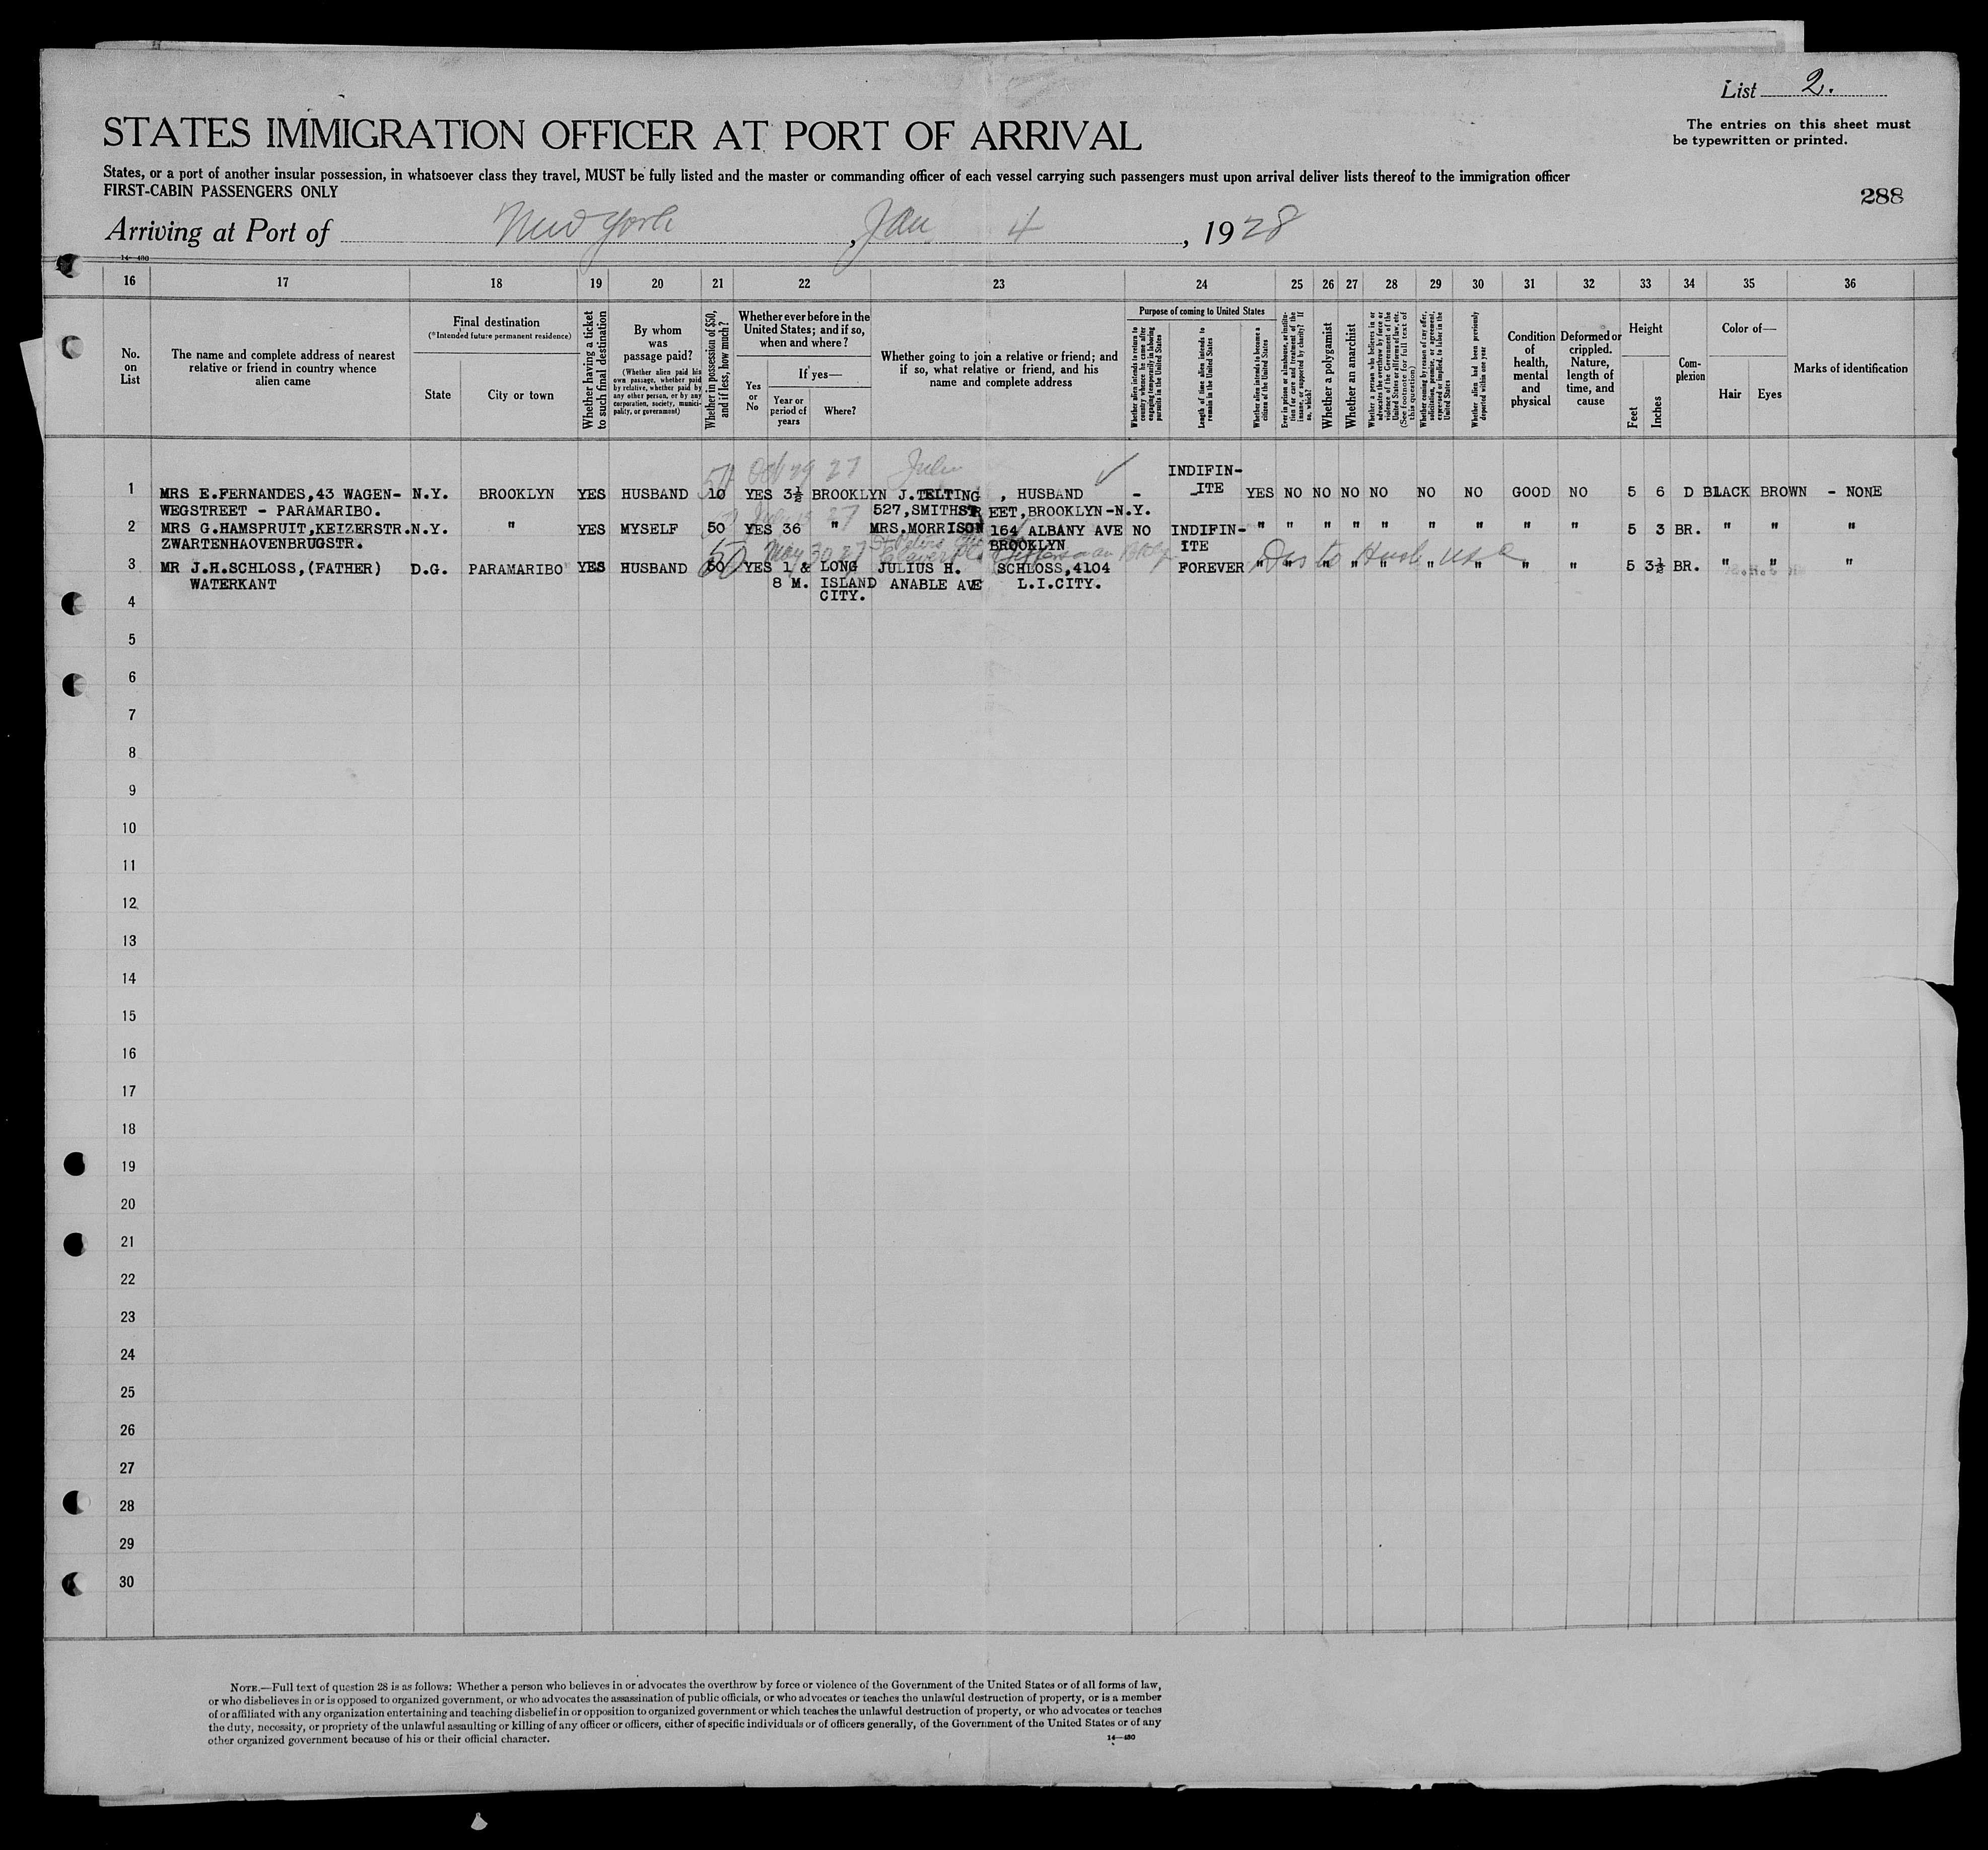 List 2.
STATES IMMIGRATION OFFICER AT PORT OF ARRIVAL
The entries on this sheet must
be typewritten or printed.
States, or a port of another insular possession, in whatsoever class they travel, MUST be fully listed and the master or commanding officer of each vessel carrying such passengers must upon arrival deliver lists thereof to the immigration officer
FIRST-CABIN PASSENGERS ONLY
288
Arriving at Port of New York, Jan 4, 1928
14—430
16 17 18 19 20 21 22 23 24 25 26 27 28 29 30 31 32 33 34 35 36
No. on List
The name and complete address of nearest relative or friend in country whence alien came
Final destination
(*Intended future permanent residence)
State
City or town
Whether having a ticket to such final destination
By whom was passage paid?
(Whether alien paid his own passage, whether paid by relative, whether paid by any other person, or by any corporation, society, municipality, or government)
Whether in possession of $50, and if less, how much?
Whether ever before in the United States; and if so, when and where?
Yes or No
If yes—
Year or period of years
Where?
Whether going to join a relative or friend; and if so, what relative or friend, and his name and complete address
Purpose of coming to United States
Whether alien intends to return to country whence he came after engaging temporarily in laboring pursuits in the United States
Length of time alien intends to remain in the United States
Whether alien intends to become a citizen of the United States
Ever in prison or almshouse, or institution for care and treatment of the insane, or supported by charity? If so, which?
Whether a polygamist
Whether an anarchist
Whether a person who believes in or advocates the overthrow by force or violence of the Government of the United States or all forms of law, etc. (See footnote for full text of this question)
Whether coming by reason of any offer, solicitation, promise, or agreement, expressed or implied, to labor in the United States
Whether alien had been previously deported within one year
Condition of health, mental and physical
Deformed or crippled. Nature, length of time, and cause
Height
Feet
Inches
Complexion
Color of—
Hair
Eyes
Marks of identification
50 Oct 29 27 INDIFIN-
1 MRS E.FERNANDES,43 WAGEN- N.Y. BROOKLYN YES HUSBAND 10 YES 3½ BROOKLYN J.TELTING , HUSBAND - -ITE YES NO NO NO NO NO NO GOOD NO 5 6 D BLACK BROWN - NONE
WEGSTREET - PARAMARIBO. 27 527,SMITHSTREET,BROOKLYN-N.Y.
2 MRS G.HAMSPRUIT,KEIZERSTR. N.Y. " YES MYSELF 50 YES 36 " MRS.MORRISON 164 ALBANY AVE NO INDIFIN- " " " " " " " " " 5 3 BR. " " "
ZWARTENHAOVENBRUGSTR. 50 May 30 27 BROOKLYN ITE
3 MR J.H.SCHLOSS,(FATHER) D.G. PARAMARIBO YES HUSBAND 50 YES 1 & LONG JULIUS H. SCHLOSS,4104 FOREVER " " " " " " " " " 5 3½ BR. " " "
WATERKANT 8 M. ISLAND ANABLE AVE L.I.CITY.
CITY.
4
5
6
7
8
9
10
11
12
13
14
15
16
17
18
19
20
21
22
23
24
25
26
27
28
29
30
NOTE.—Full text of question 28 is as follows: Whether a person who believes in or advocates the overthrow by force or violence of the Government of the United States or of all forms of law,
or who disbelieves in or is opposed to organized government, or who advocates the assassination of public officials, or who advocates or teaches the unlawful destruction of property, or is a member
of or affiliated with any organization entertaining and teaching disbelief in or opposition to organized government or which teaches the unlawful destruction of property, or who advocates or teaches
the duty, necessity, or propriety of the unlawful assaulting or killing of any officer or officers, either of specific individuals or of officers generally, of the Government of the United States or of any
other organized government because of his or their official character.
14—430